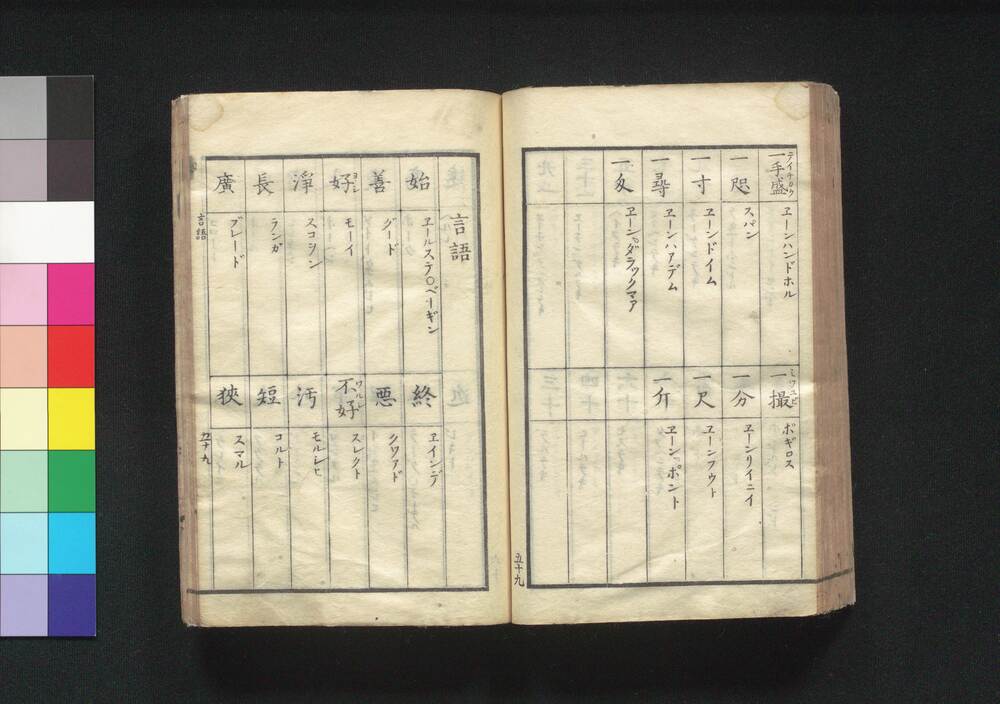 テイチウク
一手盛
ヱーンハンドホル
一咫
スパン
一寸
ヱーンドイム
一尋
ヱーンハアデム
一㕛
ヱーン゚ダラックマア
ミツユビ
一撮
ポギロス
一分
ヱーンリイニイ
一尺
ヱーンフウト
一斤
ヱーン゚ポント
五十九
言語
始
ヱールステ○ベーギン
善
グード
ヨシ
好
モーイ
淨
スコヲン
長
ランガ
廣
ブレード
終
ヱインデ
悪
クワアド
ワルシ
不好
スレクト
汚
モルシヒ
短
コルト
狹
スマル
言語
五十九